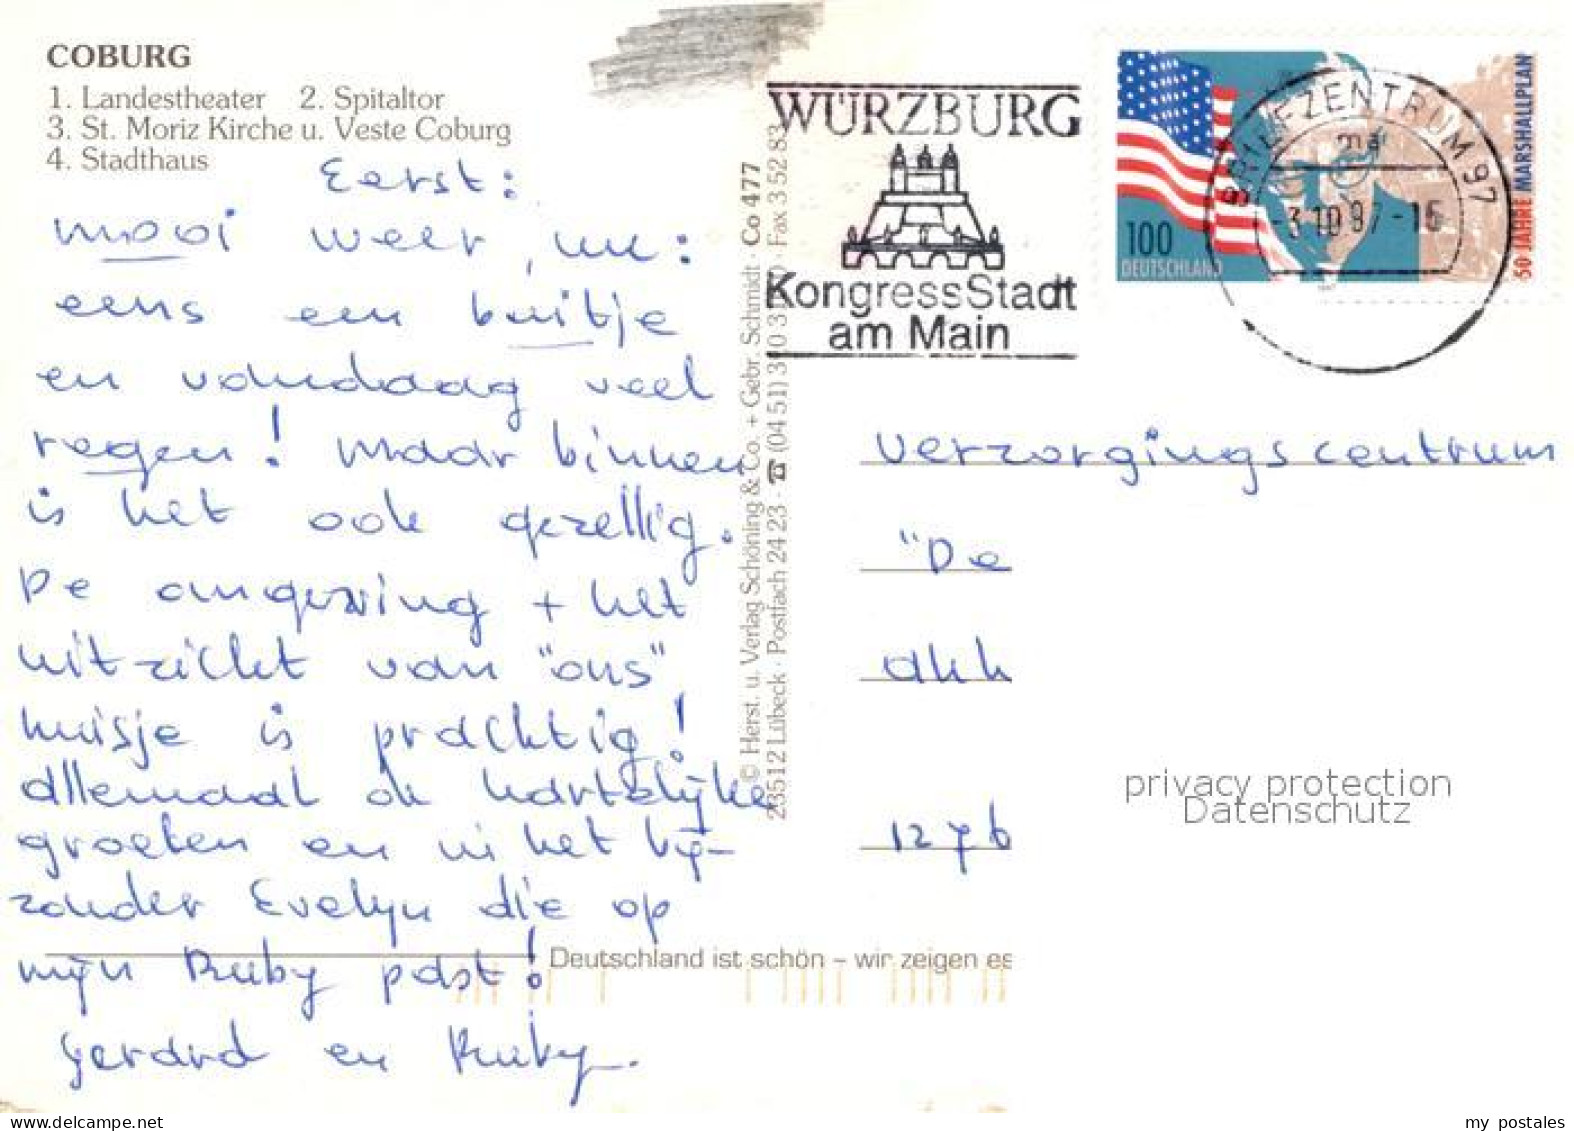 COBURG
1. Landestheater 2. Spitaltor
3. St. Moriz Kirche u. Veste Coburg
4. Stadthaus
Eerst:
mooi weer, nu:
eens een buitje
en vandaag veel
regen! Maar binnen
is het ook gezellig.
De omgeving + het
uitzicht van "ons"
huisje is prachtig!
Allemaal de hartelijke
groeten en in het bij-
zonder Evelyn die op
mijn Ruby past!
Gerard en Ruby.
© Herst. u. Verlag Schöning & Co. + Gebr. Schmidt · Co 477
23512 Lübeck · Postfach 24 23 · ☎ (04 51) 3 10 3 Fax 3 52 83
WÜRZBURG
KongressStadt
am Main
100
DEUTSCHLAND
50 JAHRE MARSHALLPLAN
BRIEFZENTRUM 97
-3.10.97-15
Verzorgingscentrum
"De
Ahh
1276
privacy protection
Datenschutz
Deutschland ist schön – wir zeigen es
my postales